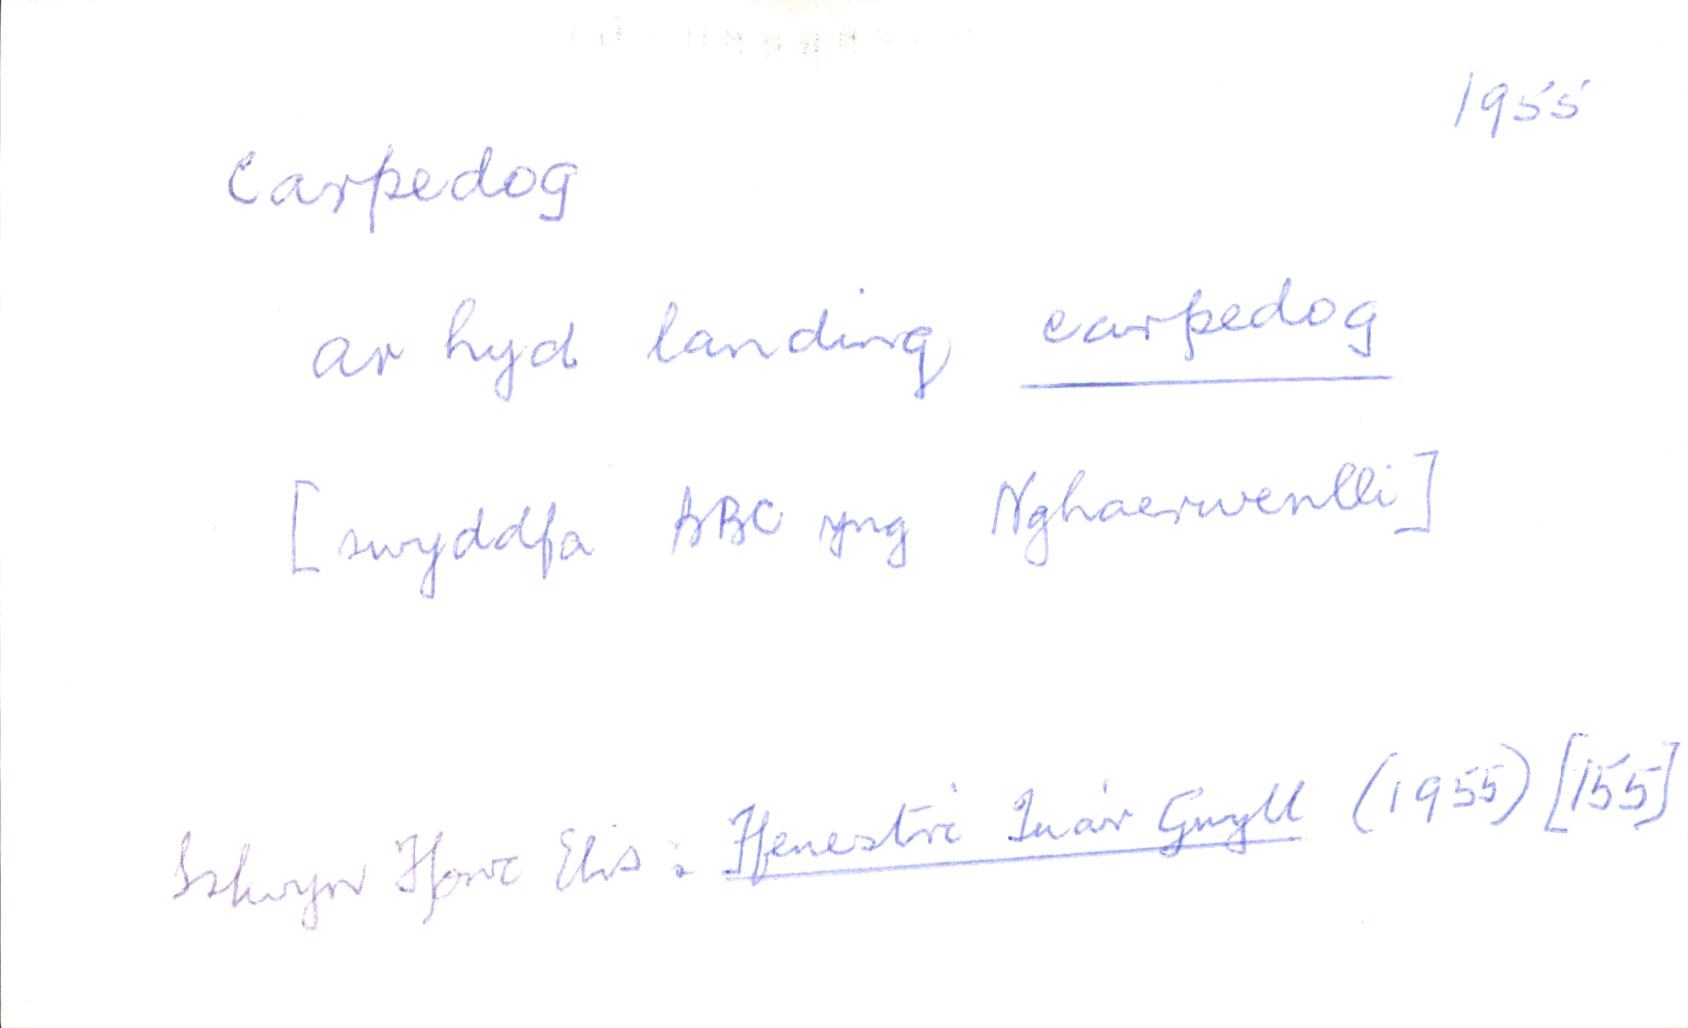 1955
carpedog
ar hyd landing carpedog
[swyddfa BBC yng Nghaerwenlli]
Islwyn Ffowc Elis: Ffenestri Tua'r Gwyll (1955) [155]